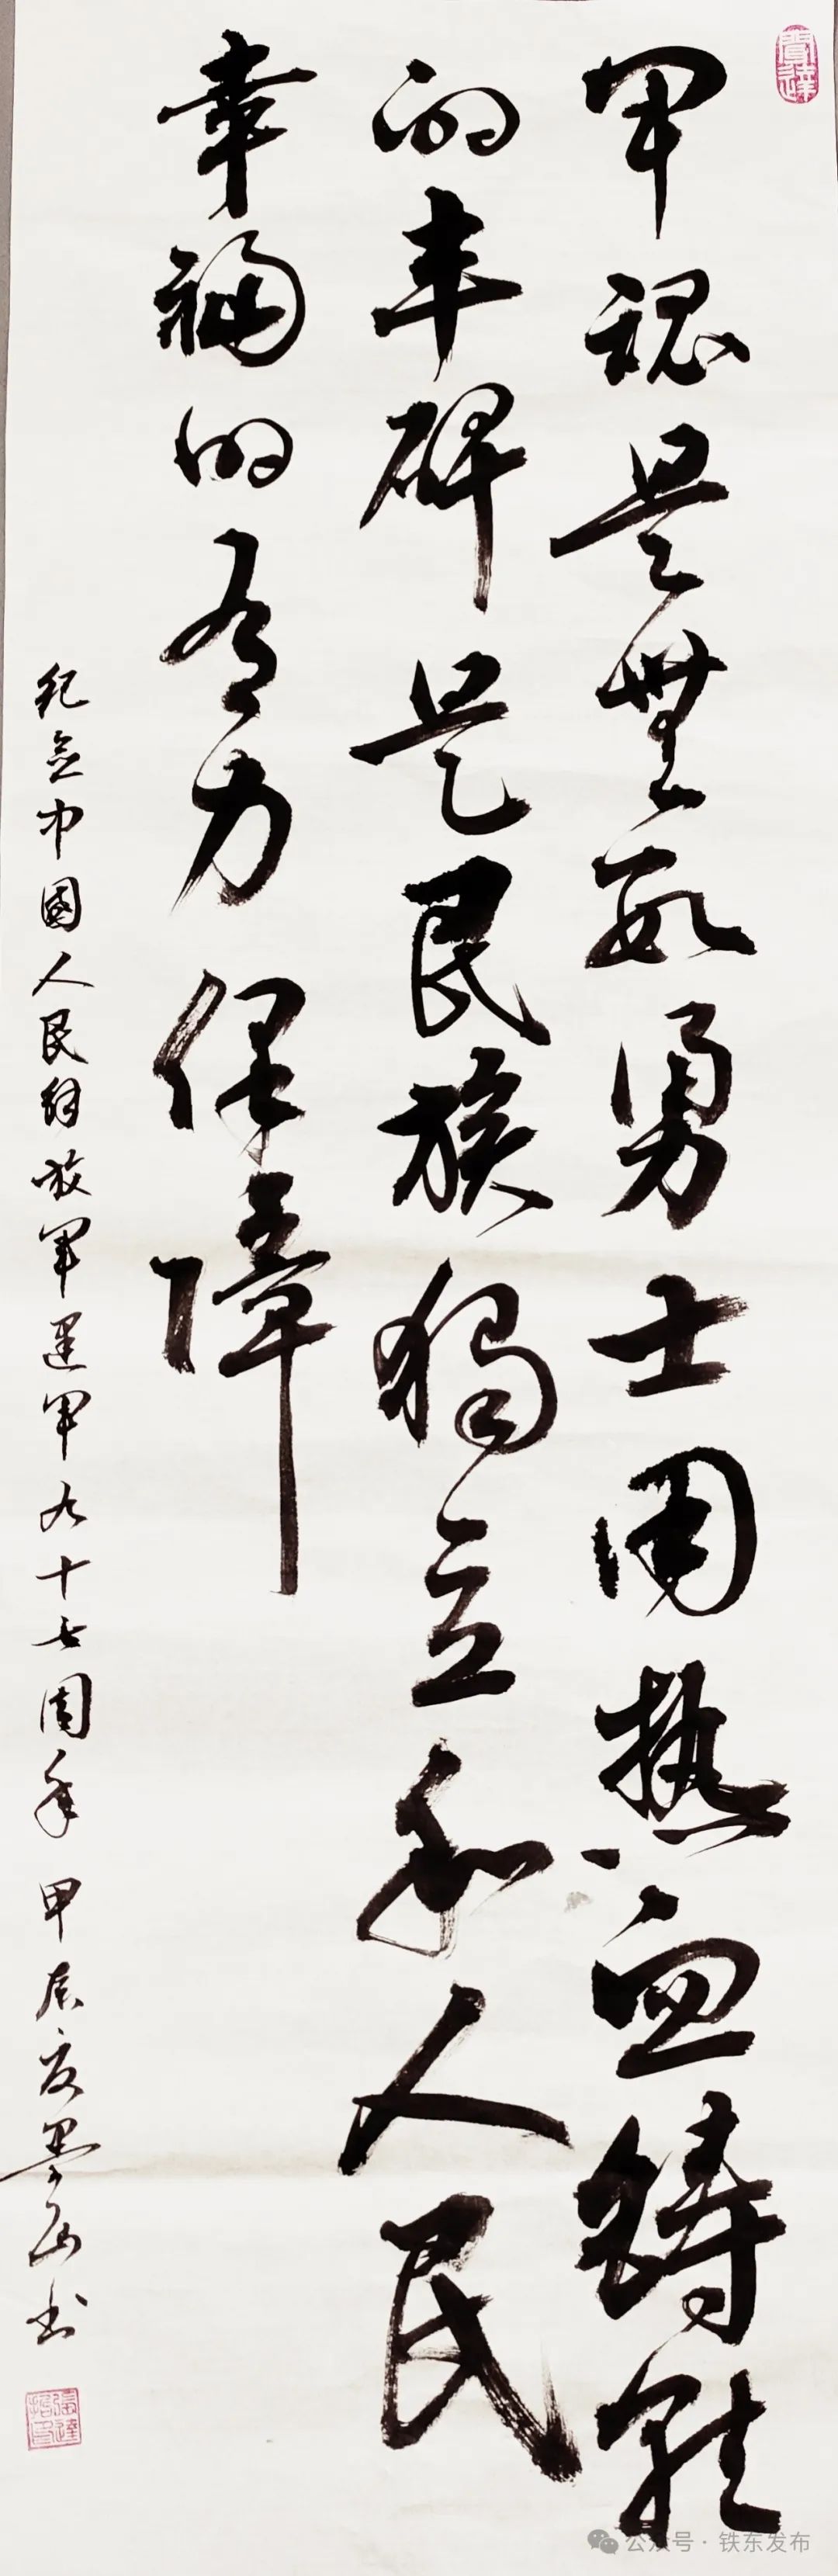 聞達
军魂是無数勇士用热血鑄就
的丰碑是民族獨立和人民
幸福的有力保障
纪念中國人民解放军建军九十七周年 甲辰夏墨山书
公众号·铁东发布